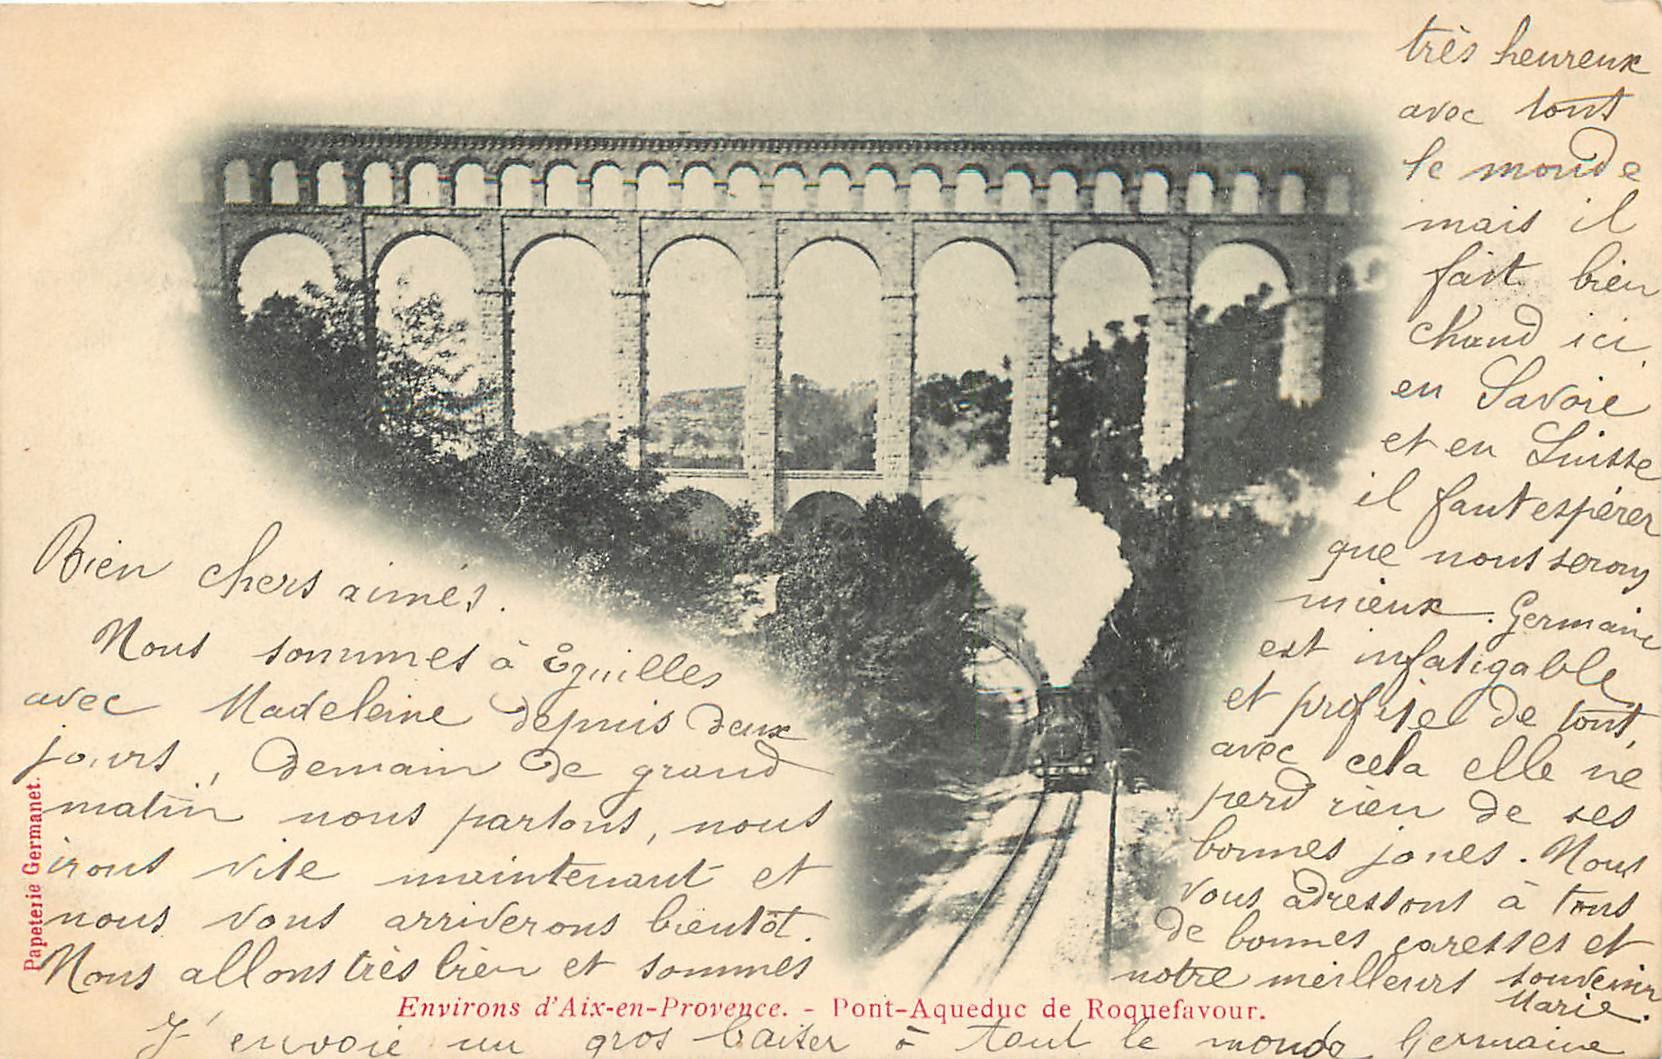 Bien chers aimés.
Nous sommes à Eguilles
avec Madeleine depuis deux
jours, demain de grand
matin nous partons, nous
irons vite maintenant et
nous vous arriverons bientôt.
Nous allons très bien et sommes
très heureux
avec tout
le monde
mais il
fait bien
chaud ici,
en Savoie
et en Suisse
il faut espérer
que nous serons
mieux. Germaine
est infatigable
et profite de tout,
avec cela elle ne
perd rien de ses
bonnes joues. Nous
vous adressons à tous
de bonnes caresses et
notre meilleurs souvenir
Marie.
J'envoie un gros baiser à tout le monde Germaine
Papeterie Germanet.
Environs d'Aix-en-Provence. - Pont-Aqueduc de Roquefavour.